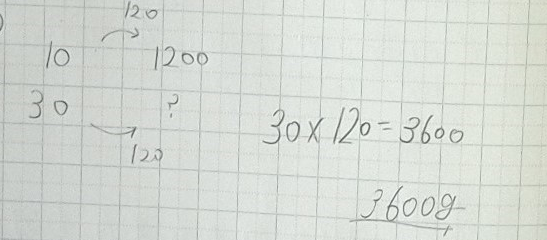 120
10 1200
30 ?
120
30×120=3600
3600g